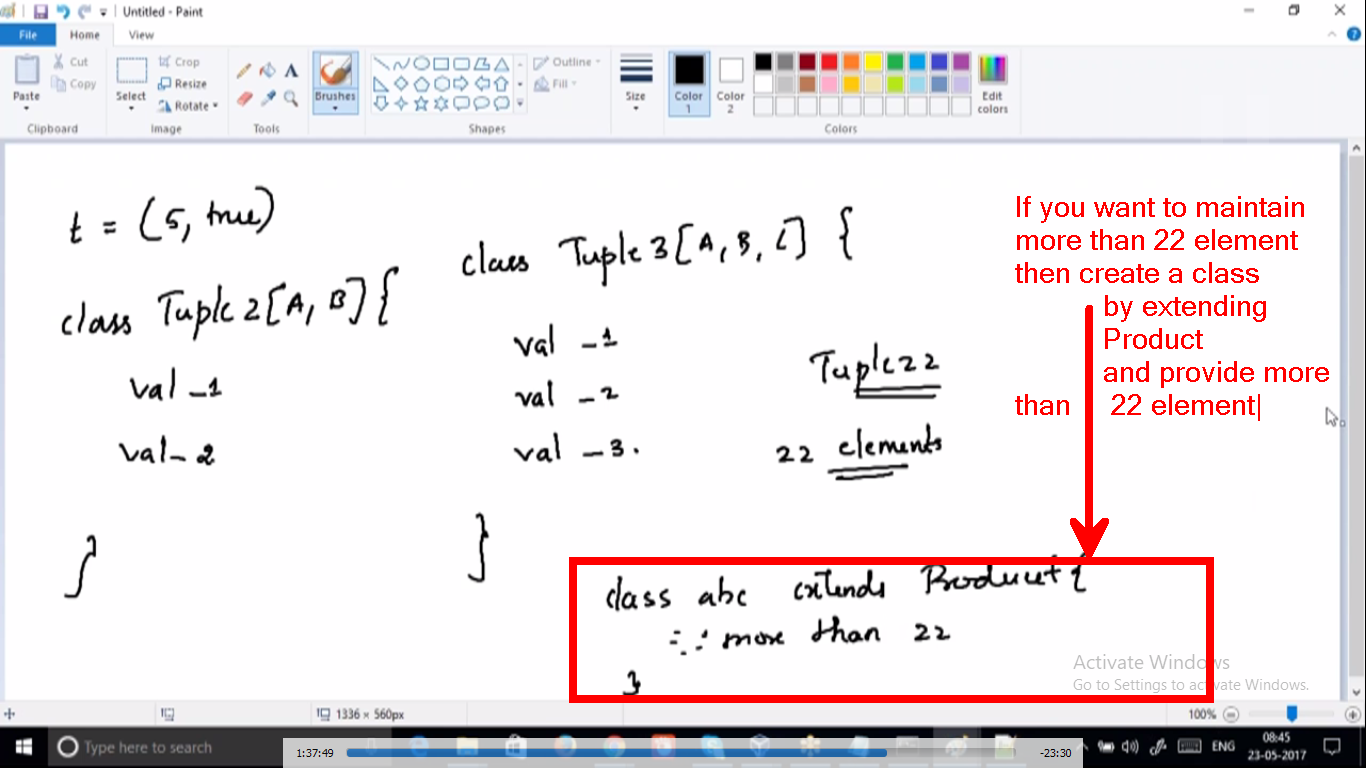 Untitled - Paint
File
Home
View
Paste
Cut
Copy
Clipboard
Select
Crop
Resize
Rotate
Image
Tools
Brushes
Shapes
Outline
Fill
Size
Color
1
Color
2
Edit
colors
Colors
t = (5, true)
class Tuple2[A, B]{
val _1
val _2
}
class Tuple3[A, B, C] {
val _1
val _2
val _3.
}
Tuple22
22 elements
If you want to maintain
more than 22 element
then create a class
by extending
Product
and provide more
than 22 element
class abc extends Product {
more than 22
}
Activate Windows
Go to Settings to activate Windows.
1336 × 560px
100%
Type here to search
1:37:49
-23:30
ENG
08:45
23-05-2017